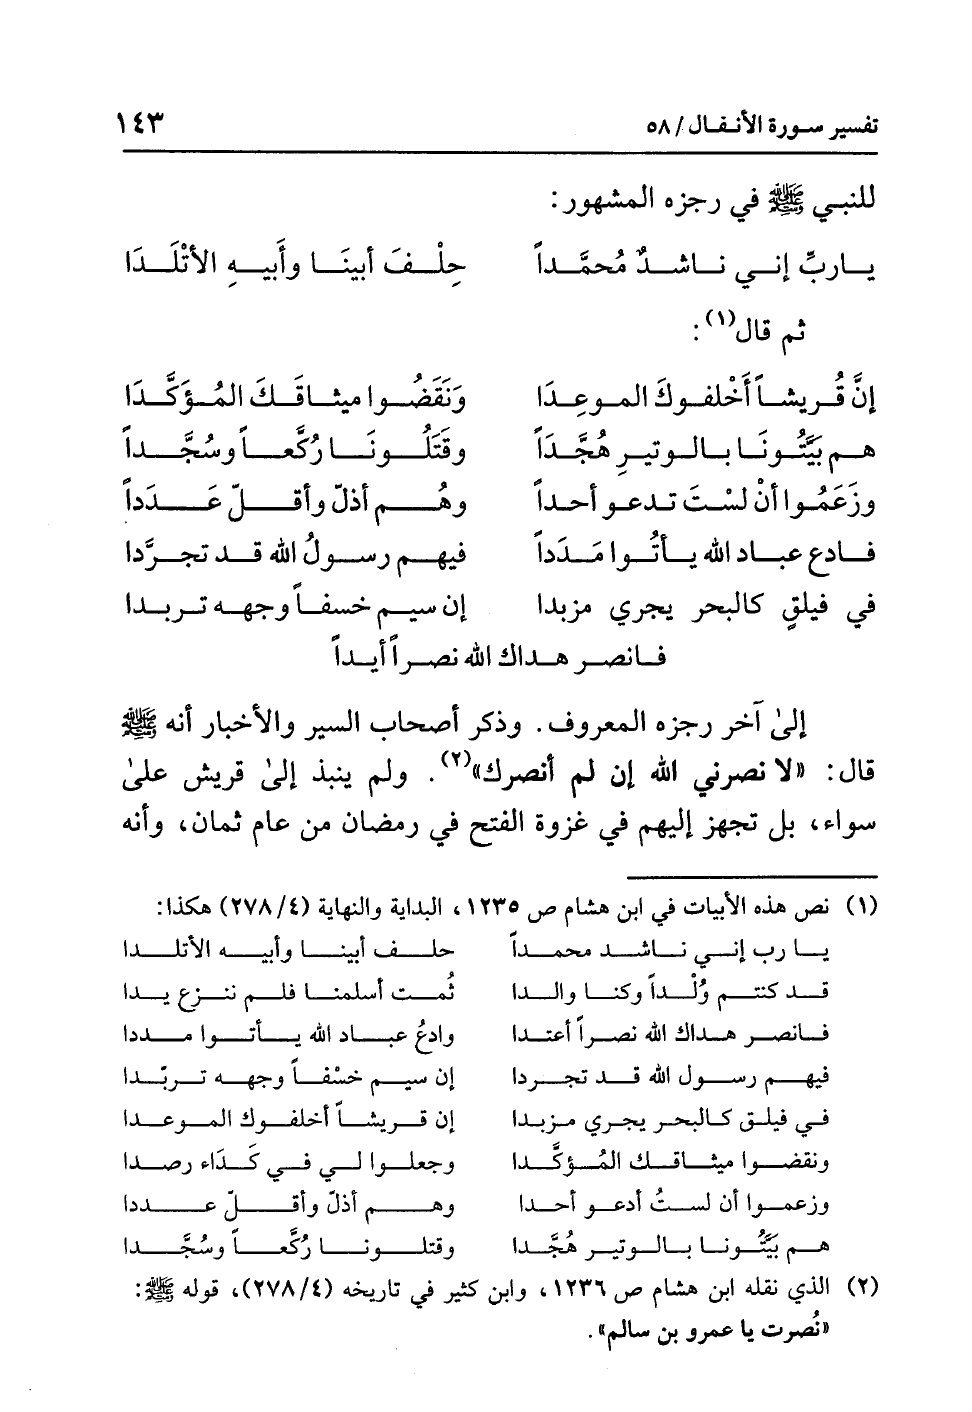 تفسير سورة الأنفال / ٥٨ ١٤٣
للنبي ﷺ في رجزه المشهور:
ياربِّ إني ناشدٌ مُحمَّداً حِلْفَ أبينَا وأَبيهِ الأتْلَدَا
ثم قال(١):
إنَّ قُريشاً أَخْلفوكَ الموعِدَا وَنَقَضُوا ميثاقَكَ المُؤكَّدَا
هم بَيَّتُونَا بالوتيرِ هُجَّدَاً وقَتَلُونَا رُكَّعاً وسُجَّداً
وزَعَمُوا أنْ لسْتَ تدعو أحداً وهُم أذلّ وأقلّ عَدَداً
فادع عباد الله يأتُوا مَدَداً فيهم رسولُ الله قد تجرَّدا
في فيلقٍ كالبحر يجري مزبدا إن سيم خسفاً وجهه تربدا
فانصر هداك الله نصراً أيداً
إلىٰ آخر رجزه المعروف. وذكر أصحاب السير والأخبار أنه ﷺ
قال: «لا نصرني الله إن لم أنصرك»(٢). ولم ينبذ إلىٰ قريش علىٰ
سواء، بل تجهز إليهم في غزوة الفتح في رمضان من عام ثمان، وأنه
(١) نص هذه الأبيات في ابن هشام ص ١٢٣٥، البداية والنهاية (٤/ ٢٧٨) هكذا:
يا رب إني ناشد محمداً حلف أبينا وأبيه الأتلدا
قد كنتم وُلْداً وكنا والدا ثُمت أسلمنا فلم ننزع يدا
فانصر هداك الله نصراً أعتدا وادعُ عباد الله يأتوا مددا
فيهم رسول الله قد تجردا إن سيم خسْفاً وجهه تربّدا
في فيلق كالبحر يجري مزبدا إن قريشاً أخلفوك الموعدا
ونقضوا ميثاقك المُؤكَّدا وجعلوا لي في كَدَاء رصدا
وزعموا أن لستُ أدعو أحدا وهم أذلّ وأقلّ عددا
هم بيَّتُونا بالوتير هُجَّدا وقتلونا رُكَّعاً وسُجَّدا
(٢) الذي نقله ابن هشام ص ١٢٣٦، وابن كثير في تاريخه (٤/ ٢٧٨)، قوله ﷺ:
«نُصرت يا عمرو بن سالم».